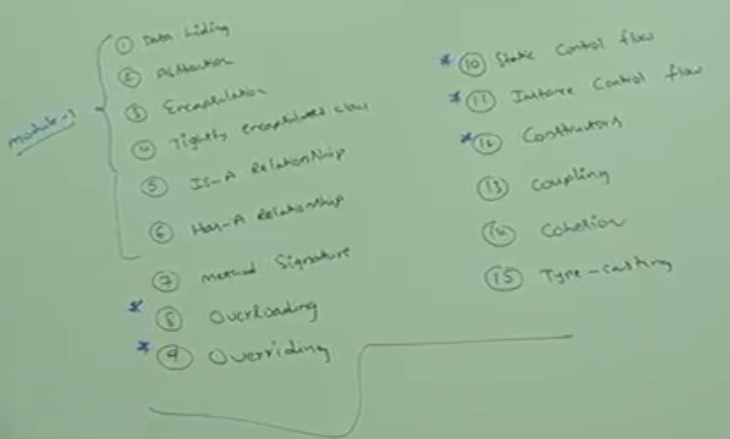 module-1
① Data hiding
② Abstraction
③ Encapsulation
④ Tightly encapsulated class
⑤ IS-A Relationship
⑥ Has-A Relationship
⑦ method Signature
* ⑧ Overloading
* ⑨ Overriding
* ⑩ Static Control flow
* ⑪ Instance Control flow
* ⑫ Constructors
⑬ Coupling
⑭ Cohesion
⑮ Type-casting